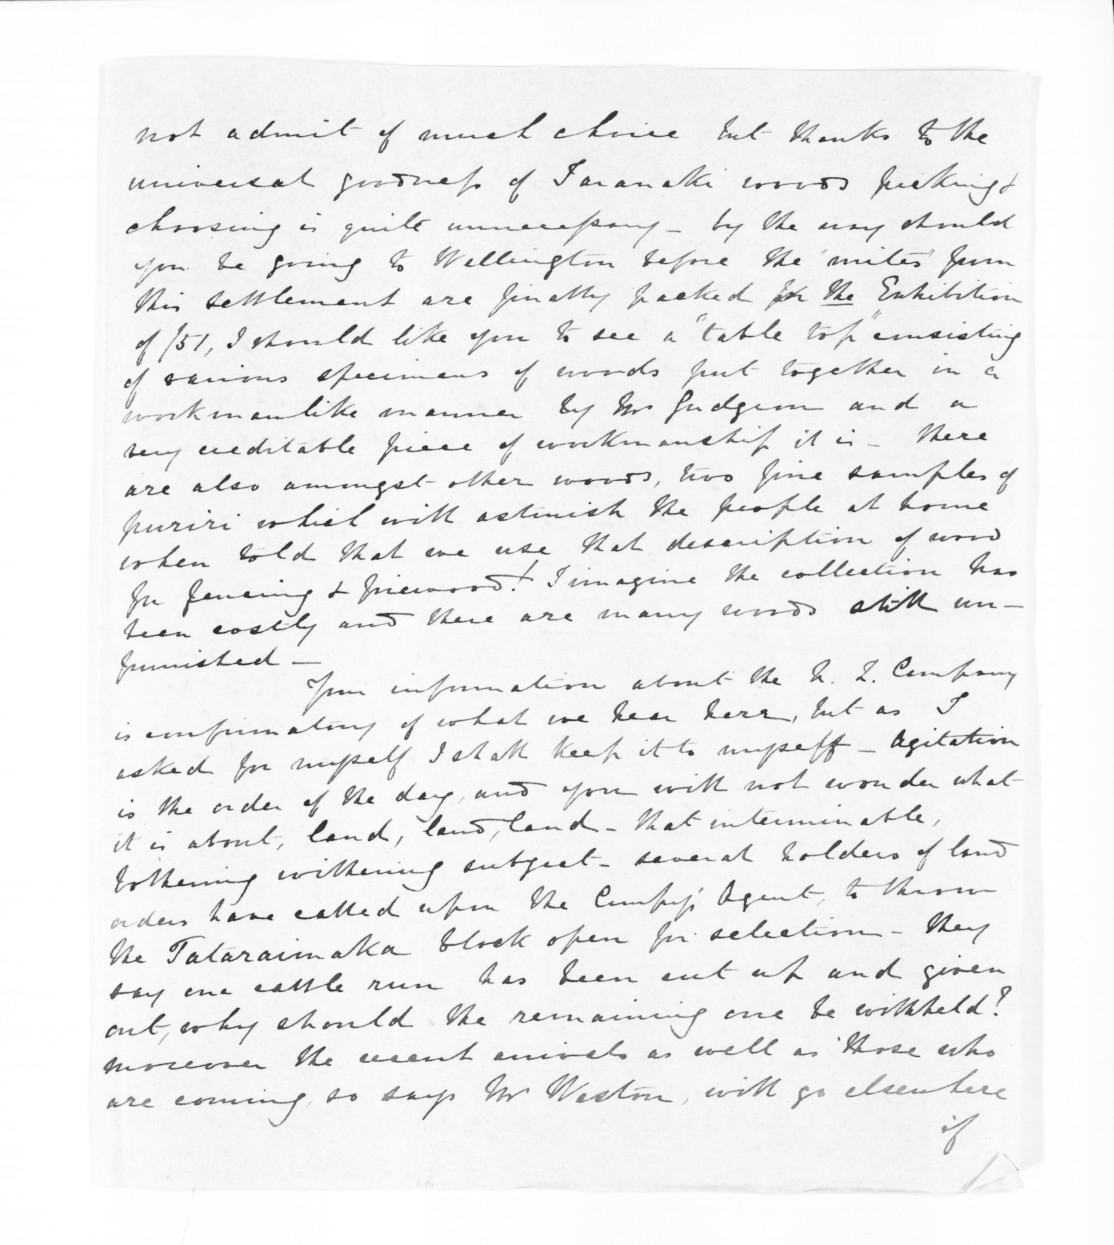 not admit of much choice but thanks to the
universal goodness of Taranaki woods picking &
choosing is quite unnecessary - by the way should
you be going to Wellington before the 'mites' from
this settlement are finally packed for the Exhibition
of /51, I should like you to see a "table top" consisting
of various specimens of woods put together in a
workmanlike manner by Mr Gudgeon and a
very creditable piece of workmanship it is - there
are also amongst other woods, two fine samples of
puriri which will astonish the people at home
when told that we use that description of wood
for fencing & firewood! I imagine the collection has
been costly and there are many woods still un-
furnished -
Your information about the N. Z. Company
is confirmatory of what we hear here, but as I
asked for myself I shall keep it to myself - Agitation
is the order of the day, and you will not wonder what
it is about, land, land, land - that interminable,
bothering withering subject - several holders of land
orders have called upon the Compy's Agent, to throw
the Tataraimaka block open for selection - they
say one cattle run has been cut up and given
out, why should the remaining one be withheld?
moreover the recent arrivals as well as those who
are coming, so says Mr Weston, will go elsewhere
if